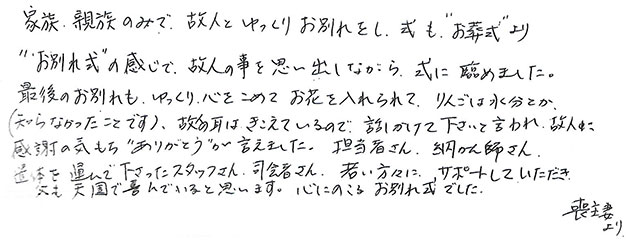 家族、親族のみで、故人とゆっくりお別れをし、式も、"お葬式"より
"お別れ式"の感じで、故人の事を思い出しながら、式に臨めました。
最後のお別れも、ゆっくり、心をこめてお花を入れられて、りんごは水分とか、
(知らなかったことです)、故人の耳は、きこえているので、話しかけて下さいと言われ、故人に
感謝の気もち"ありがとう"が言えました。担当者さん、納かん師さん、
遺体を運んで下さったスタッフさん、司会者さん、若い方々に、サポートしていただき、
父も天国で喜んでいると思います。心にのこるお別れ式でした。
喪主妻
より